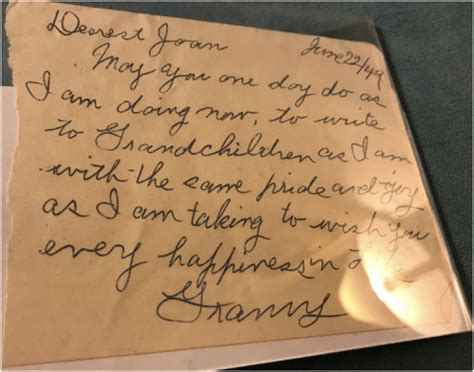 Dearest Joan June 22/49
May you one day do as
I am doing now, to write
to Grandchildren as I am
with the same pride and joy
as I am taking to wish you
every happiness in
Granny